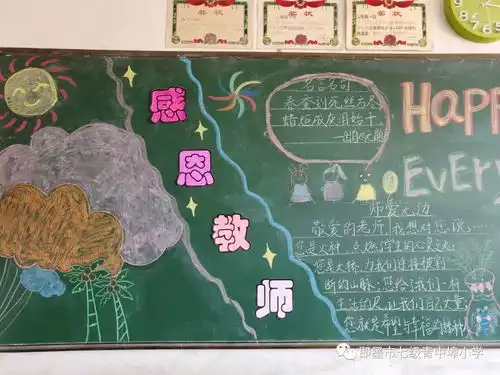 奖状
奖状
奖状
感恩教师
名言名句
春蚕到死丝方尽
蜡炬成灰泪始干。
HaPP
EvEr
师爱无边
敬爱的老师,我想对您说:
您是火种,点燃了学生的心灵之
您是
们连接
断的山脉;您给了我们一杆
生活的尺,让我们自己丈量
您就是希望与幸福的
即墨市七级青中埠小学